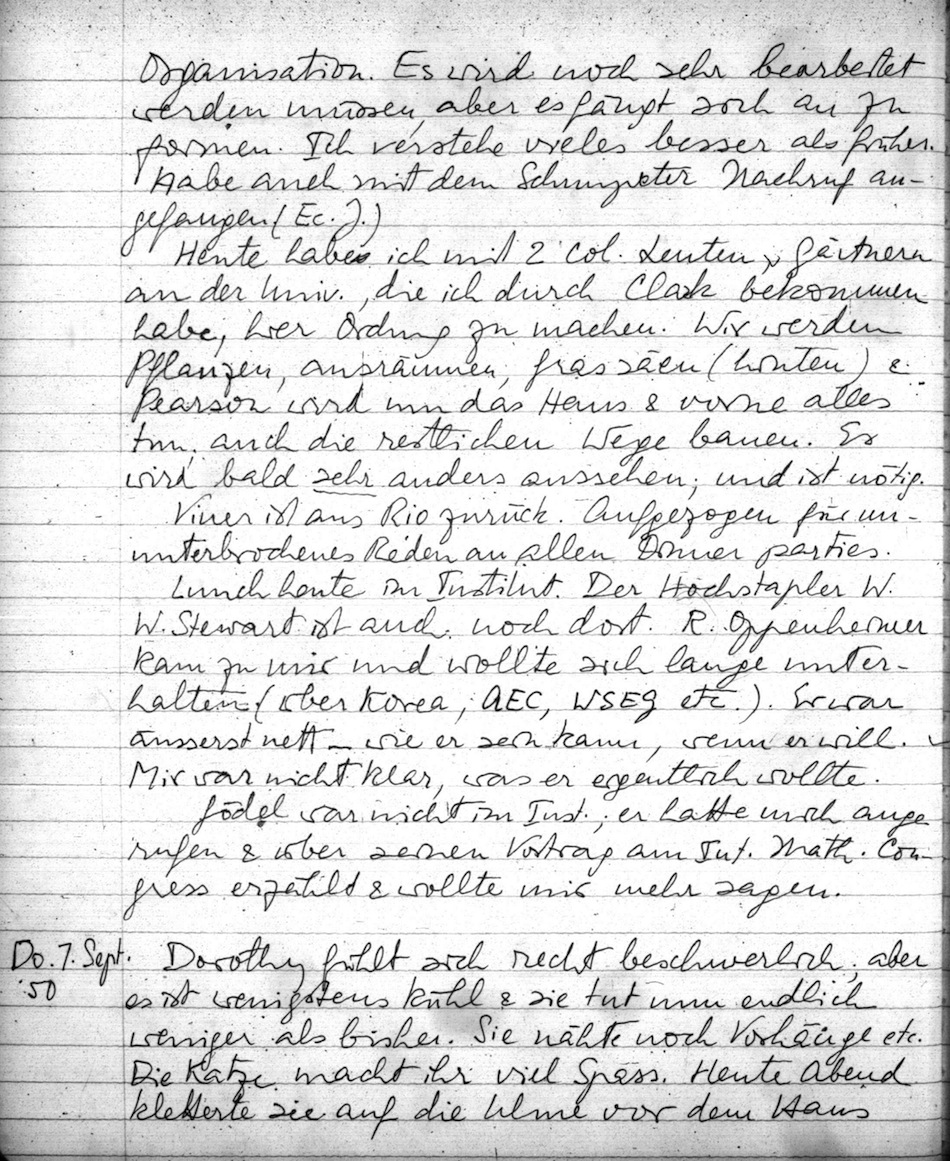 Organisation. Es wird noch sehr bearbeitet
werden müssen, aber es fängt sich an zu
formen. Ich verstehe vieles besser als früher.
Habe auch mit dem Schumpeter Nachruf an-
gefangen (Ec. J.)
Heute habe ich mit 2 col. Leuten, Gärtnern
an der Univ., die ich durch Clark bekommen
habe, hier Ordnung zu machen. Wir werden
Pflanzen, ausräumen, Gras säen (hinten) &
Pearson wird um das Haus & vorne alles
tun, auch die restlichen Wege bauen. Es
wird bald sehr anders aussehen; und ist nötig.
Viner ist aus Rio zurück. Aufgezogen für un-
unterbrochenes Reden an allen Dinner parties.
Lunch heute im Institut. Der Hochstapler W.
W. Stewart ist auch noch dort. R. Oppenheimer
kam zu mir und wollte sich lange unter-
halten (über Korea, AEC, WSEG etc.). Er war
äusserst nett – wie er sein kann, wenn er will.
Mir war nicht klar, was er eigentlich wollte.
Gödel war nicht im Inst.; er hatte mich ange
rufen & über seinen Vortrag am Int. Math. Con-
gress erzählt & wollte mir mehr sagen.
Do. 7. Sept. Dorothy fühlt sich recht beschwerlich, aber
'50 es ist wenigstens kühl & sie tut nun endlich
weniger als bisher. Sie nähte noch Vorhänge etc.
Die Katze macht ihr viel Spass. Heute Abend
kletterte sie auf die Ulme vor dem Haus